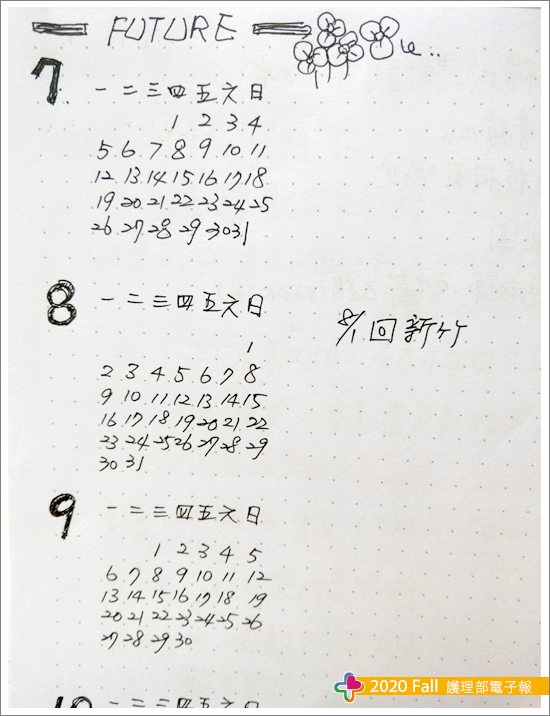 FUTURE
7. 一 二 三 四 五 六 日
1 2 3 4
5. 6. 7 8 9. 10. 11
12 13. 14. 15. 16. 17. 18
19. 20. 21. 22. 23. 24 25
26. 27. 28. 29. 30 31
8 一 二 三 四 五 六 日
1
2 3. 4. 5 6. 7. 8
9. 10. 11. 12. 13. 14. 15
16. 17. 18. 19. 20. 21. 22
23. 24. 25 26. 27. 28. 29
30 31
8/1 回新竹
9 一 二 三 四 五 六 日
1 2 3 4 5
6. 7. 8 9 10 11 12
13. 14. 15 16. 17. 18 19
20 21. 22 23. 24. 25. 26.
27. 28. 29. 30
10 一 二 三 四 五 六 日
2020 Fall 護理部電子報